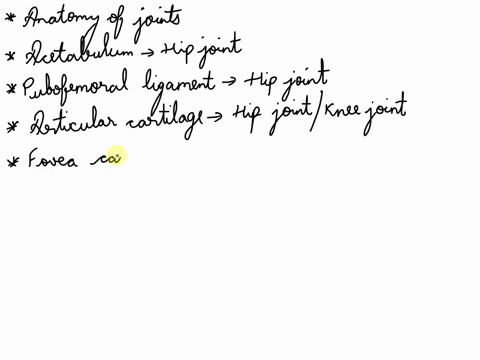 * Anatomy of joints
* Acetabulum → Hip joint
* Pubofemoral ligament → Hip joint
* Articular cartilage → Hip joint/Knee joint
* Fovea ca